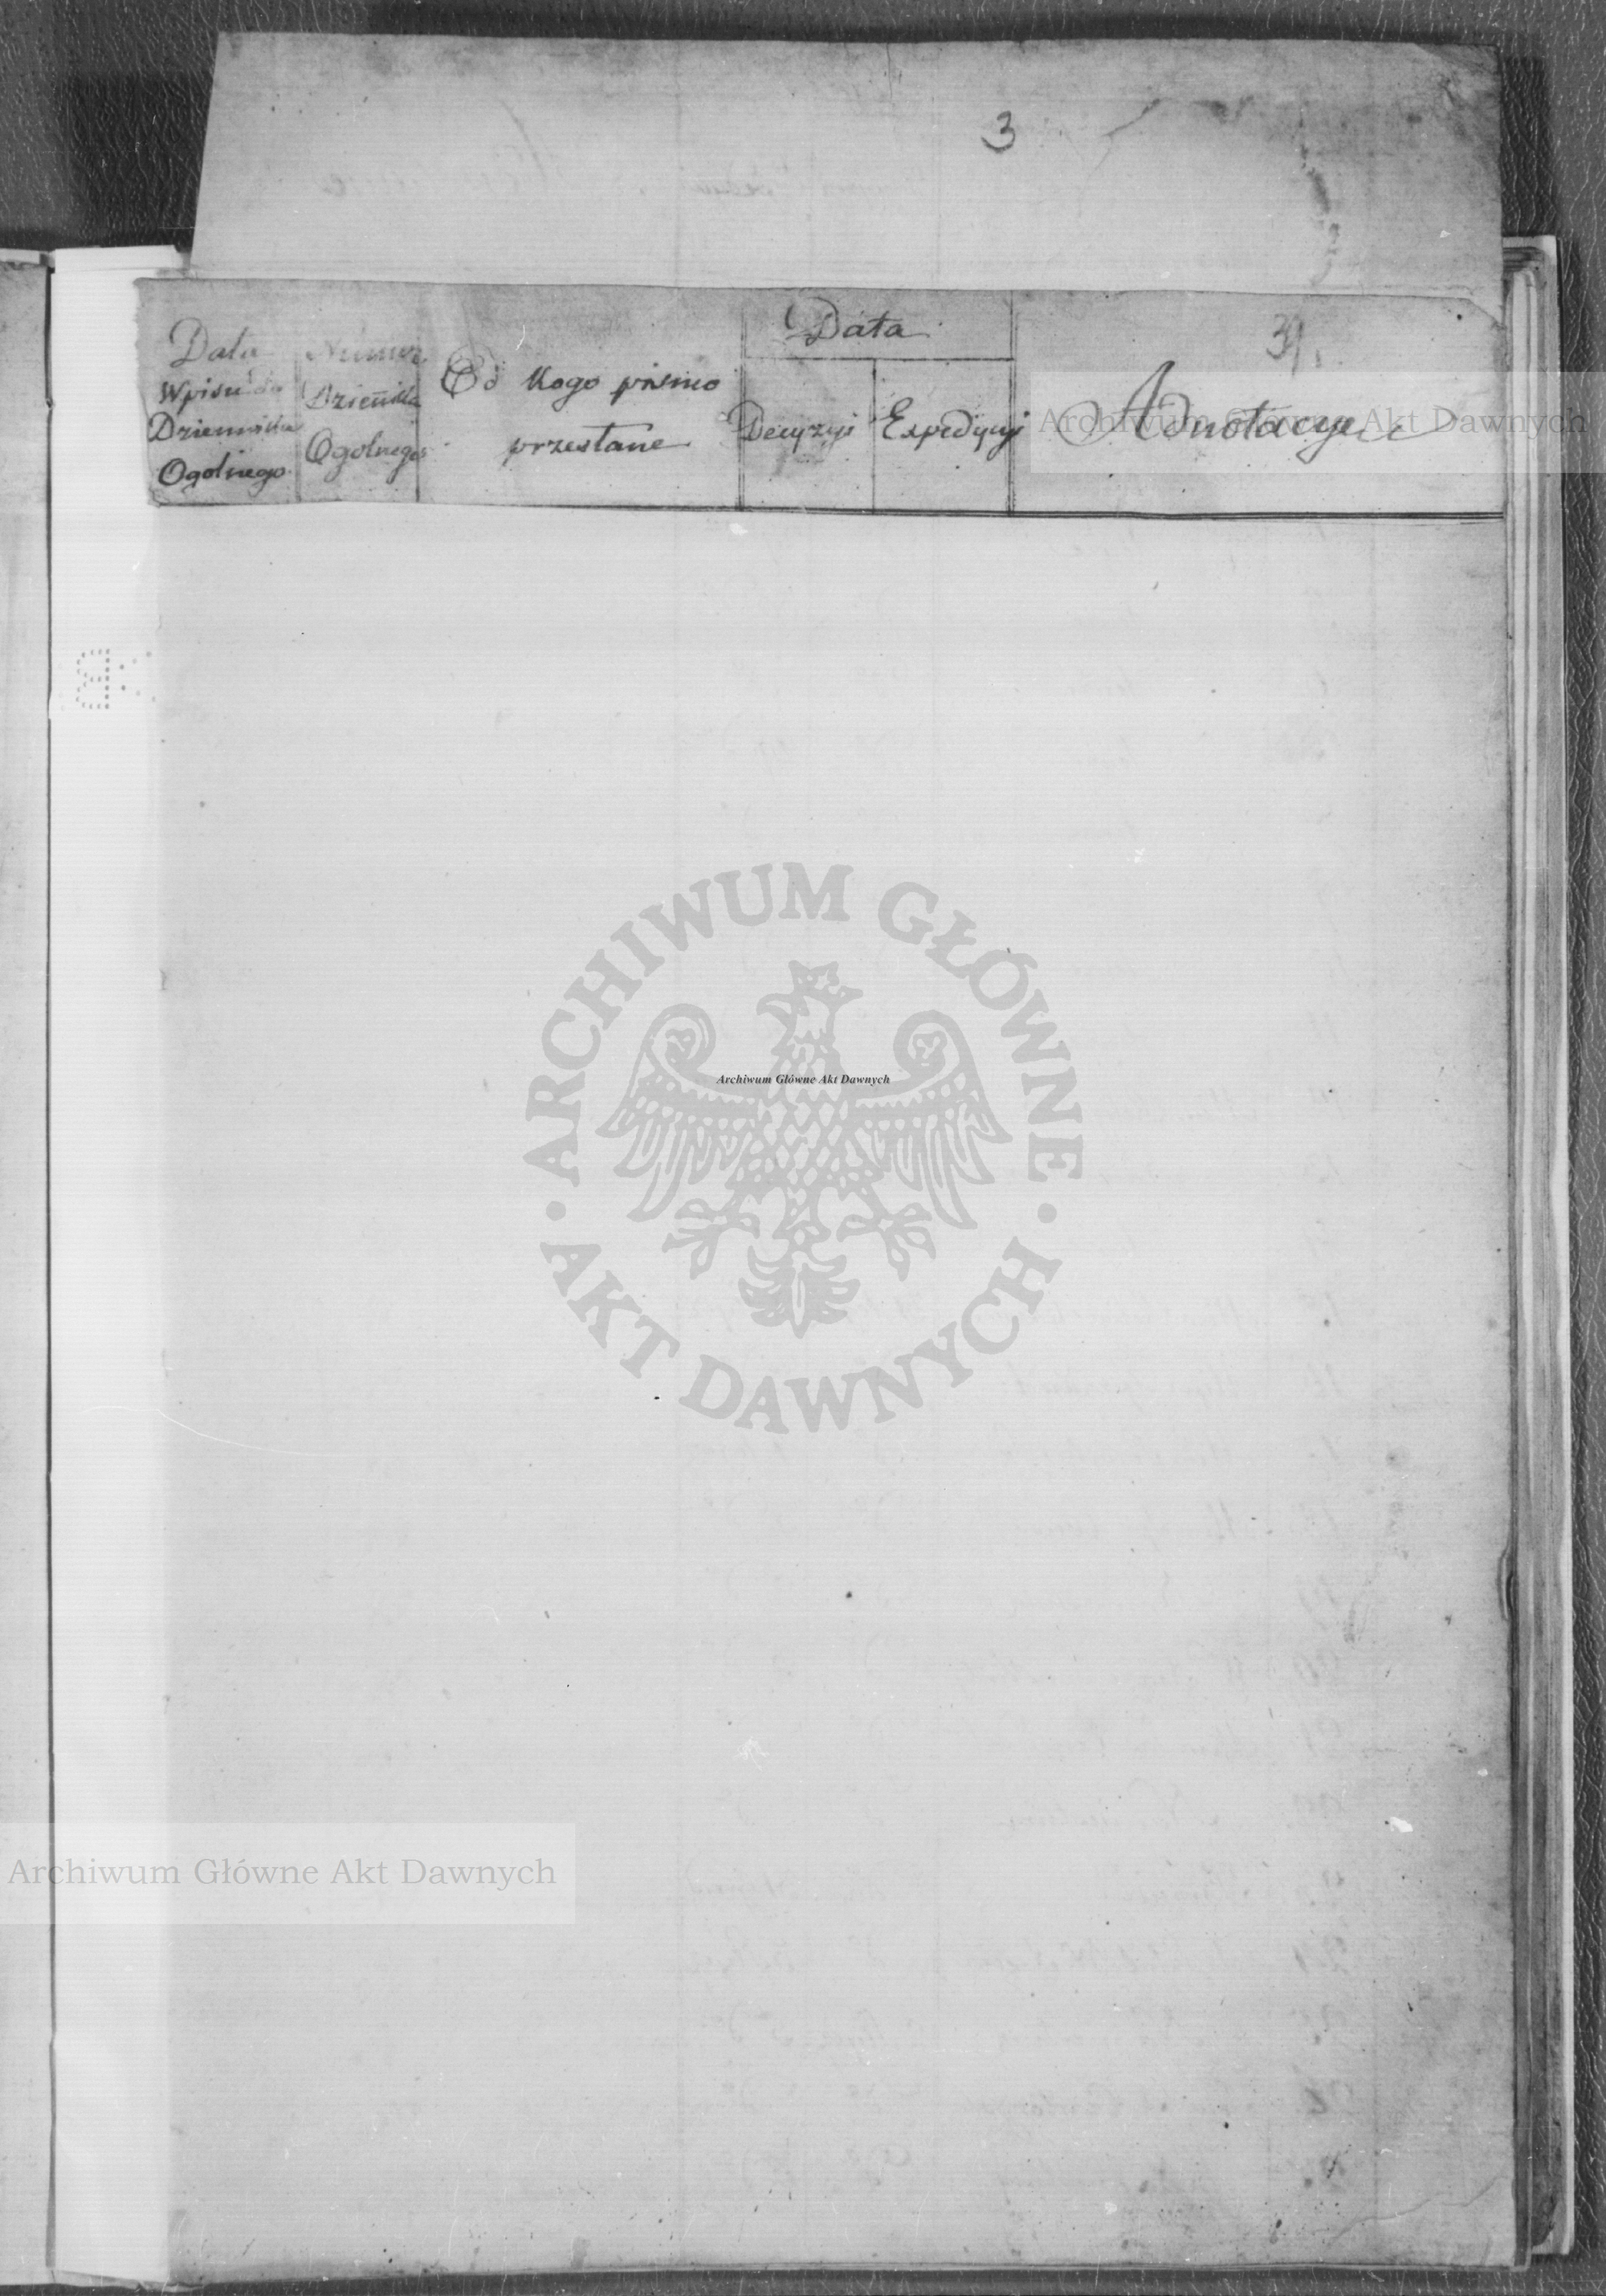 3
39.
Data
Wpisu do
Dziennika
Ogolnego
Numer
Dziennika
Ogolnego
Od Kogo pismo
przesłane
Data
Decyzyi
Expedycyi
Adnotacye
Archiwum Główne Akt Dawnych
ARCHIWUM GŁÓWNE
AKT DAWNYCH
Archiwum Główne Akt Dawnych
Archiwum Główne Akt Dawnych